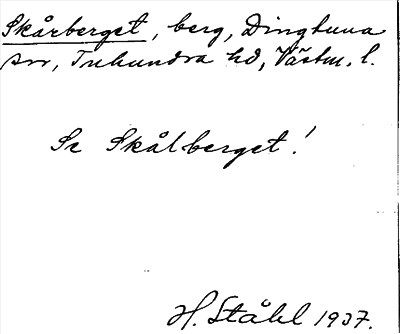 Skårberget, berg, Dingtuna
sn, Tuhundra hd, Västm. l.
Se Skålberget!
H. Ståhl 1937.